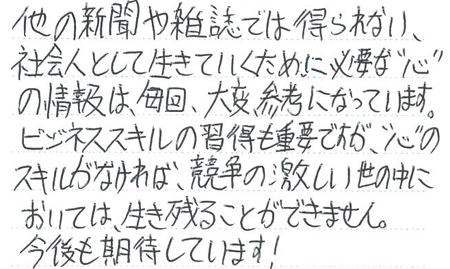 他の新聞や雑誌では得られない、
社会人として生きていくために必要な"心"
の情報は、毎回、大変、参考になっています。
ビジネススキルの習得も重要ですが、"心"の
スキルがなければ、競争の激しい世の中に
おいては、生き残ることができません。
今後も期待しています!